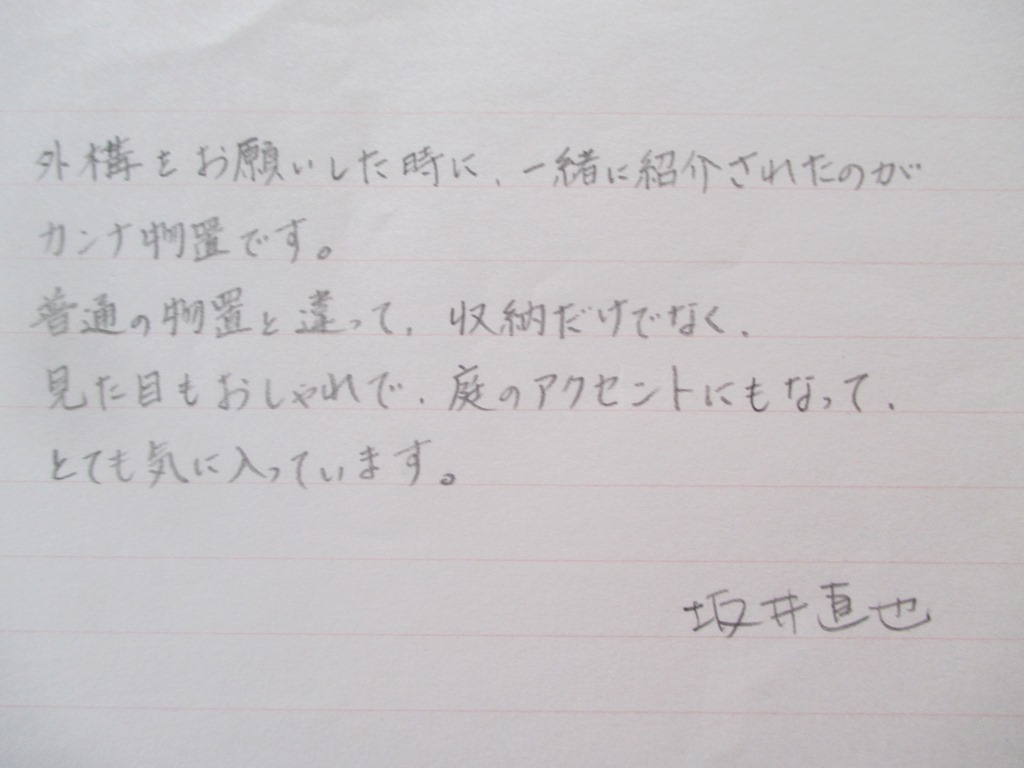 外構をお願いした時に、一緒に紹介されたのが
カンナ物置です。
普通の物置と違って、収納だけでなく、
見た目もおしゃれで、庭のアクセントにもなって、
とても気に入っています。
坂井直也